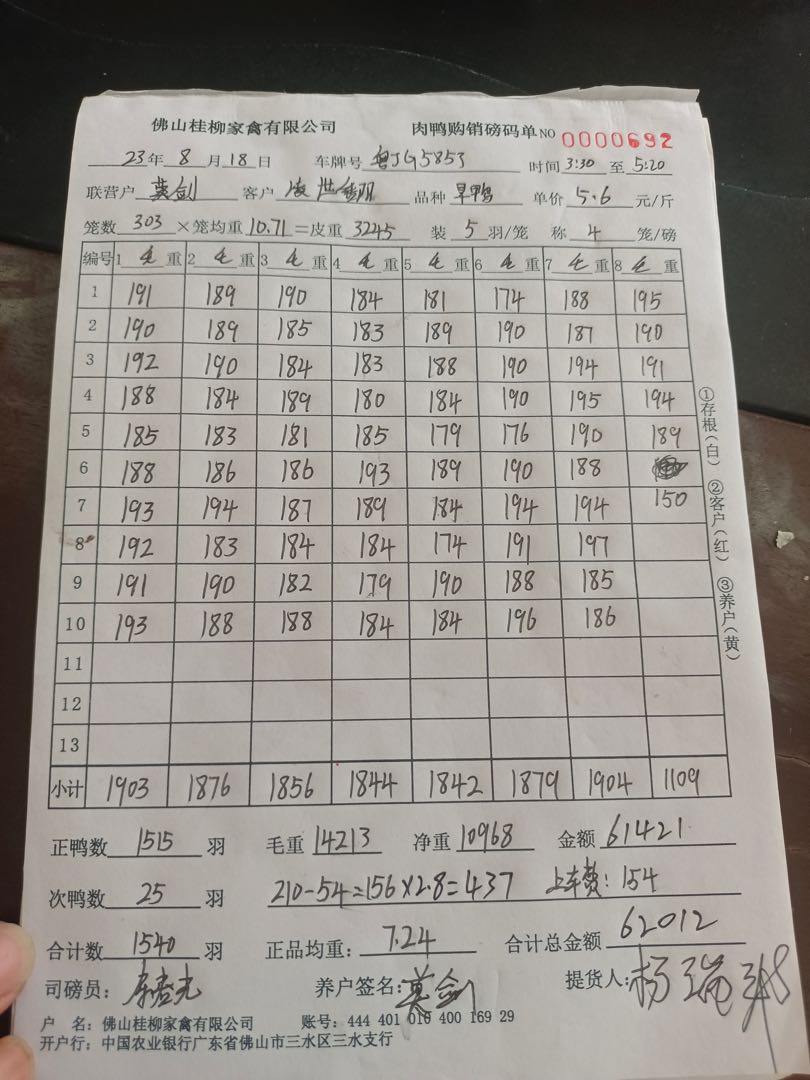 佛山桂柳家禽有限公司 肉鸭购销磅码单 NO 0000692
23年 8 月 18 日 车牌号 粤JG5853 时间 3:30 至 5:20
联营户 莫剑 客户 品种 旱鸭 单价 5.6 元/斤
笼数 303 ×笼均重 10.71 =皮重 3245 装 5 羽/笼 称 4 笼/磅
编号 1 毛 重 2 毛 重 3 毛 重 4 毛 重 5 毛 重 6 毛 重 7 毛 重 8 毛 重
1 191 189 190 184 181 174 188 195
2 190 189 185 183 189 190 187 190
3 192 190 184 183 188 190 194 191
4 188 184 189 180 184 190 195 194
5 185 183 181 185 179 176 190 189
6 188 186 186 193 189 190 188
7 193 194 187 189 184 194 194 150
8 192 183 184 184 174 191 197
9 191 190 182 179 190 188 185
10 193 188 188 184 184 196 186
11
12
13
小计 1903 1876 1856 1844 1842 1879 1904 1109
①存根(白) ②客户(红) ③养户(黄)
正鸭数 1515 羽 毛重 14213 净重 10968 金额 61421
次鸭数 25 羽 210-54=156×2.8=437 上车费: 154
合计数 1540 羽 正品均重: 7.24 合计总金额 62012
司磅员: 养户签名: 莫剑 提货人: 杨瑞
户 名: 佛山桂柳家禽有限公司 账号: 444 401 010 400 169 29
开户行: 中国农业银行广东省佛山市三水区三水支行